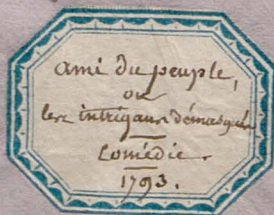 ami du peuple,
ou
les intrigans démasqués
Comédie.
1793.